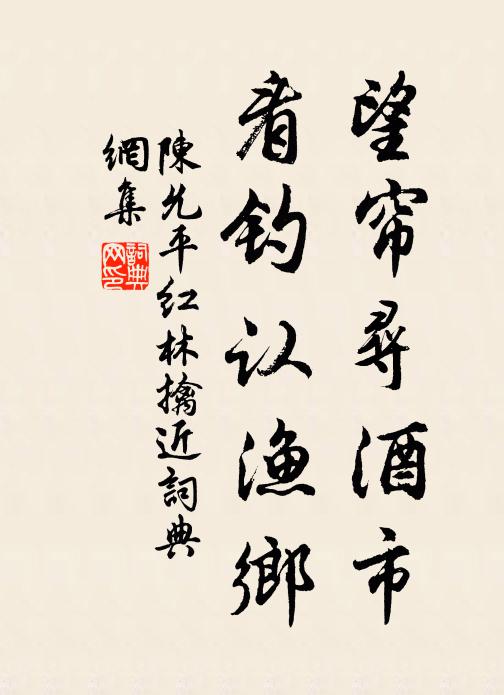 望帘尋酒市
看釣认漁鄉
陳允平红林擒近詞典
網集
詞典
网印